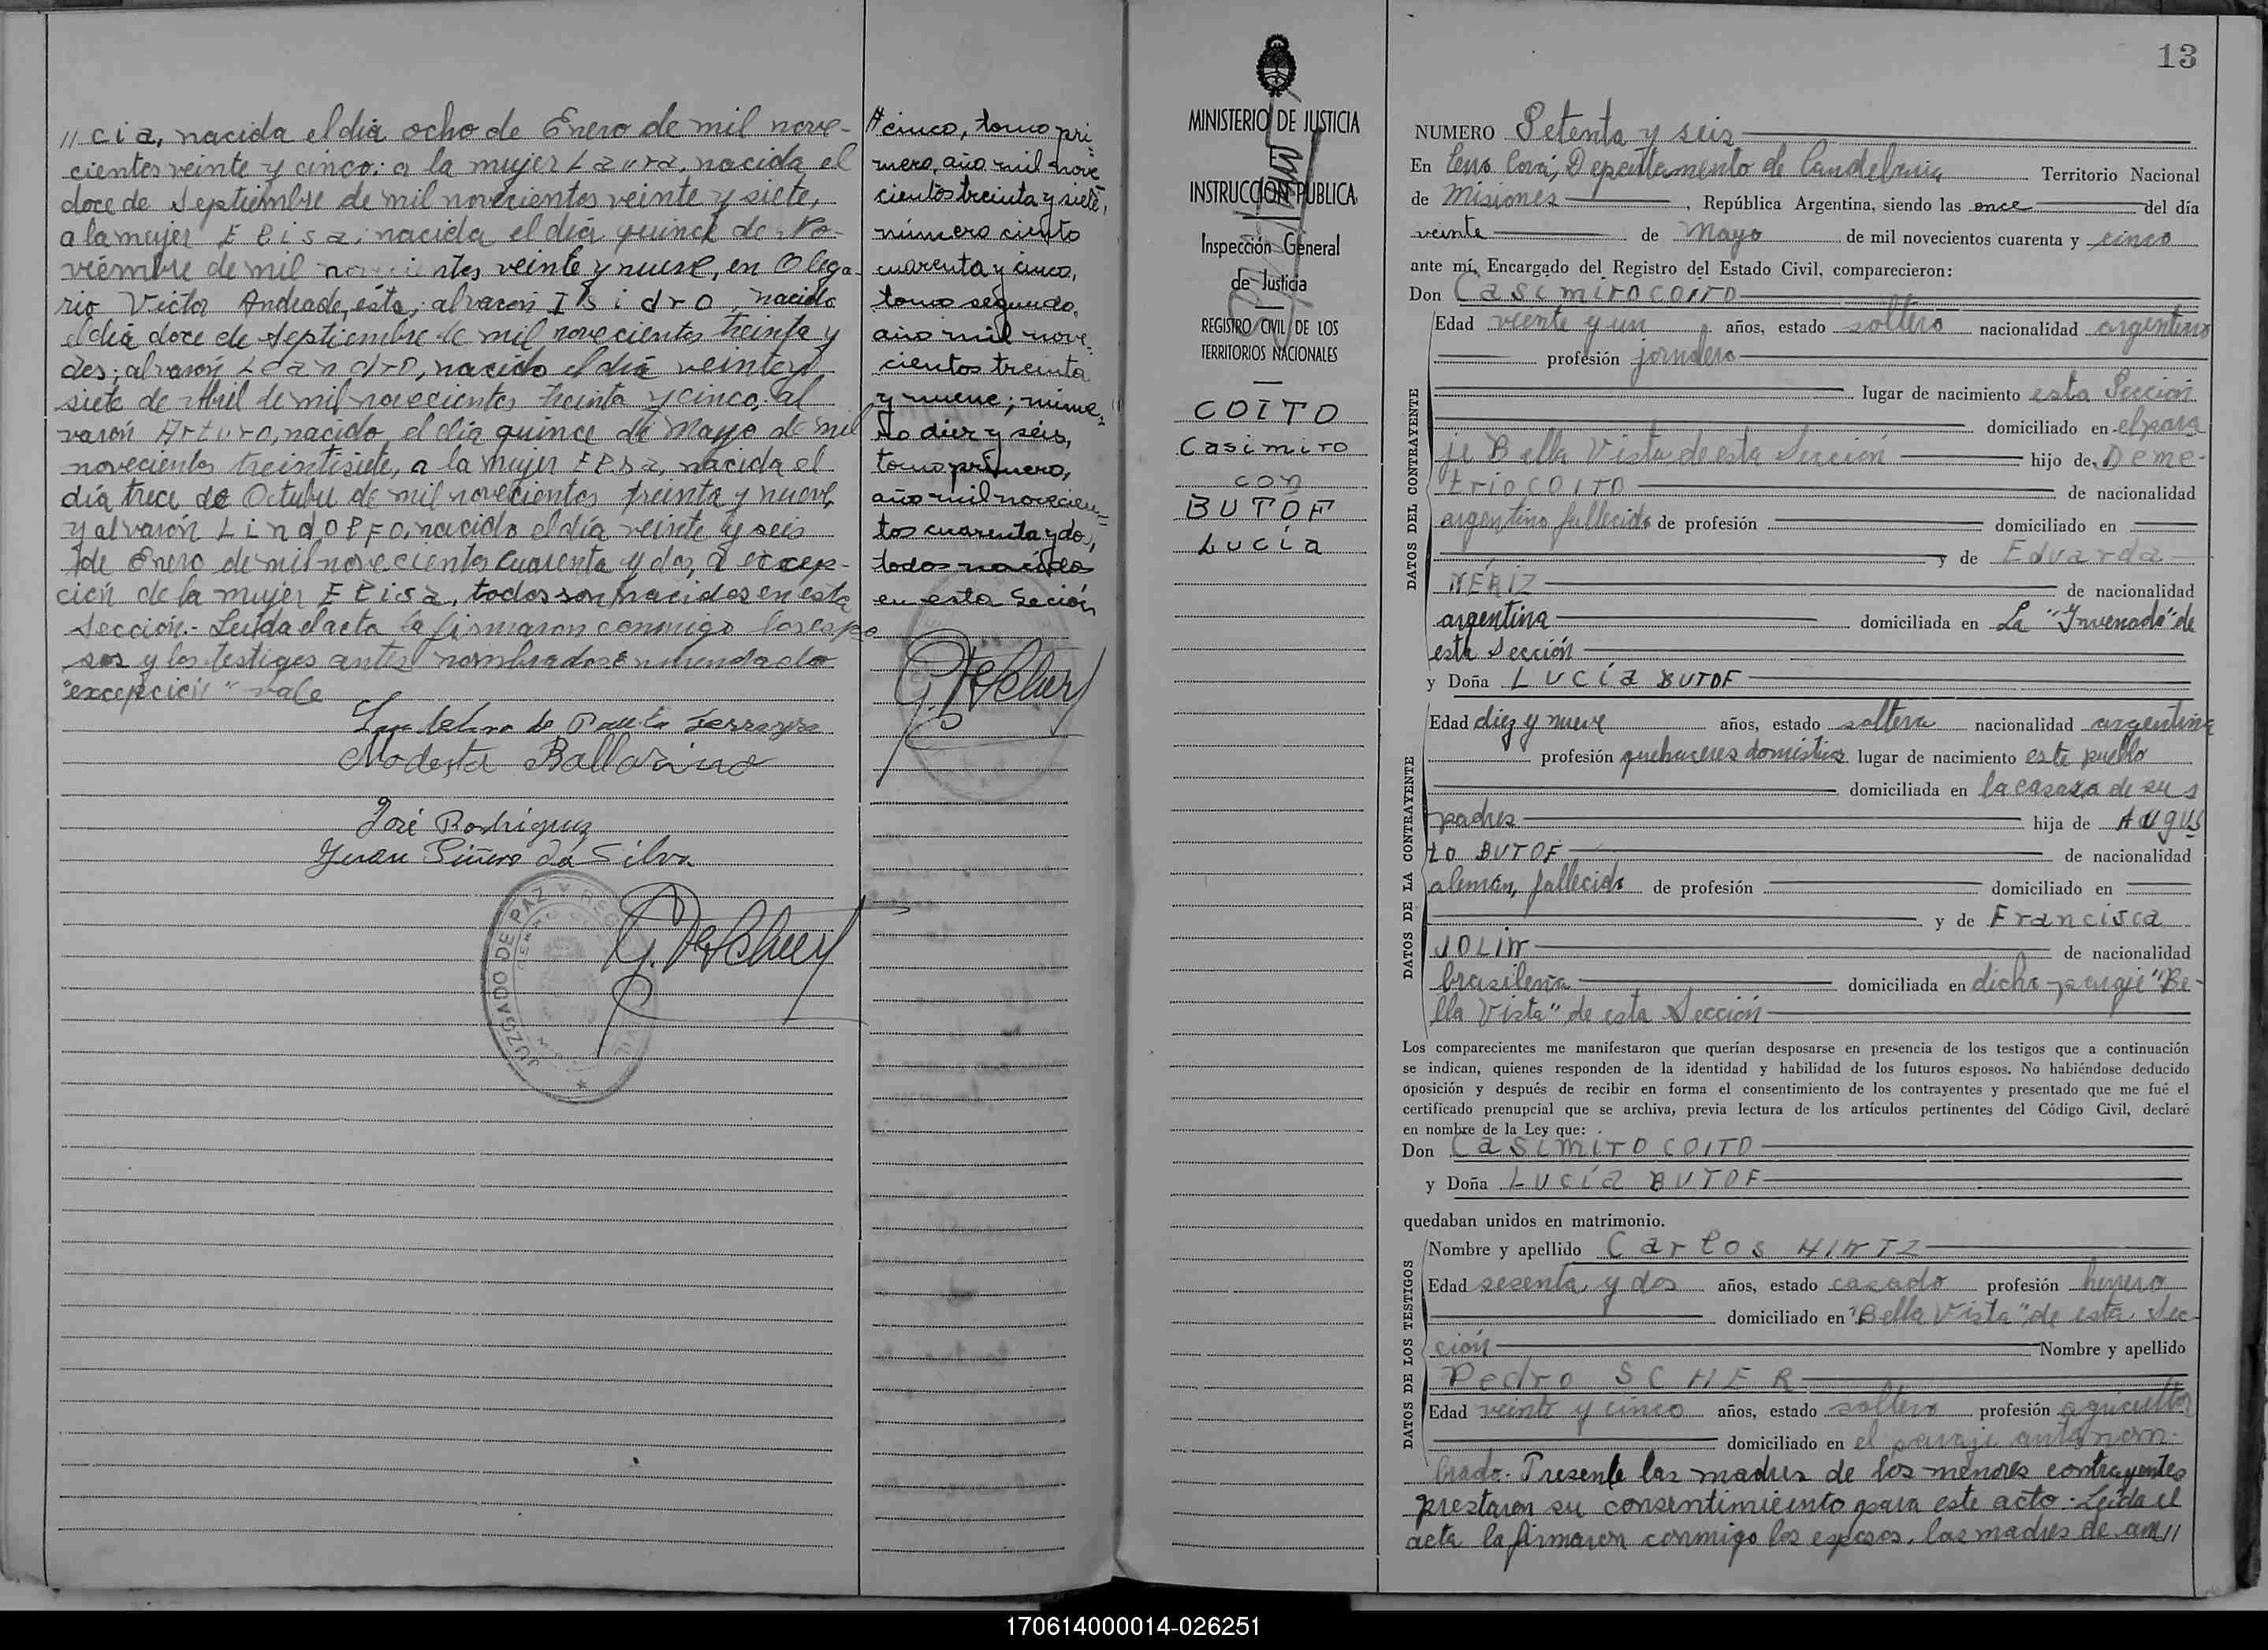 // cia, nacida el día ocho de Enero de mil nove-
cientos veinte y cinco; a la mujer Laura, nacida el
doce de Septiembre de mil novecientos veinte y siete,
a la mujer Elisa, nacida el día quince de No-
viembre de mil novecientos veinte y nueve, en Olega-
rio Victor Andrade, ésta; al varón Isidro, nacido
el día doce de Septiembre de mil novecientos treinta y
dos; al varón Leandro, nacido el día veinte y
siete de Abril de mil novecientos treinta y cinco, al
varón Arturo, nacido el día quince de Mayo de mil
novecientos treintisiete, a la mujer Elsa, nacida el
día trece de Octubre de mil novecientos treinta y nueve,
y al varón Lindolfo, nacido el día veinte y seis
de Enero de mil novecientos cuarenta y dos, a excep-
ción de la mujer Elisa, todos son nacidos en esta
Sección.- Leída el acta la firmaron conmigo los espo
sos y los testigos antes nombrados Enmendado
"excepción" vale
Modesta Ballarino
José Rodriguez
Juan Piñero da Silva
JUZGADO DE PAZ Y
// cinco, tomo pri-
mero, año mil nove
cientos treinta y siete,
número ciento
cuarenta y cinco,
tomo segundo,
año mil nove-
cientos treinta
y nueve; núme-
ro diez y séis,
tomo primero,
año mil novecien-
tos cuarenta y dos,
todos nacidos
en esta Sección
MINISTERIO DE JUSTICIA
INSTRUCCION PUBLICA
Inspección General
de Justicia
REGISTRO CIVIL DE LOS
TERRITORIOS NACIONALES
COITO
Casimiro
con
BUTOF
Lucía
13
NUMERO Setenta y seis
En Cerro Corá, Departamento de Candelaria Territorio Nacional
de Misiones, República Argentina, siendo las once del día
veinte de Mayo de mil novecientos cuarenta y cinco
ante mí, Encargado del Registro del Estado Civil, comparecieron:
Don Casimiro COITO
DATOS DEL CONTRAYENTE
Edad veinte y un años, estado soltero nacionalidad argentino
profesión jornalero
lugar de nacimiento esta Sección
domiciliado en el para
je Bella Vista de esta Sección hijo de Deme-
trio COITO de nacionalidad
argentino fallecido de profesión domiciliado en
y de Eduarda
NERIZ de nacionalidad
argentina domiciliada en La "Invernada" de
esta Sección
y Doña Lucía BUTOF
DATOS DE LA CONTRAYENTE
Edad diez y nueve años, estado soltera nacionalidad argentina
profesión quehaceres domésticos lugar de nacimiento este pueblo
domiciliada en la casa de sus
padres hija de Augus
to BUTOF de nacionalidad
alemán, fallecido de profesión domiciliado en
y de Francisca
JOLIN de nacionalidad
brasileña domiciliada en dicho paraje "Be-
lla Vista" de esta Sección
Los comparecientes me manifestaron que querían desposarse en presencia de los testigos que a continuación
se indican, quienes responden de la identidad y habilidad de los futuros esposos. No habiéndose deducido
oposición y después de recibir en forma el consentimiento de los contrayentes y presentado que me fué el
certificado prenupcial que se archiva, previa lectura de los artículos pertinentes del Código Civil, declaré
en nombre de la Ley que:
Don Casimiro COITO
y Doña Lucía BUTOF
quedaban unidos en matrimonio.
DATOS DE LOS TESTIGOS
Nombre y apellido Carlos HINTZ
Edad sesenta y dos años, estado casado profesión herrero
domiciliado en "Bella Vista" de esta Sec-
ción Nombre y apellido
Pedro SCHER
Edad veinte y cinco años, estado soltero profesión agricultor
domiciliado en el paraje antenom-
brado. Presente las madres de los menores contrayentes
prestaron su consentimiento para este acto. Leída el
acta la firmaron conmigo los esposos, las madres de am//
170614000014-026251